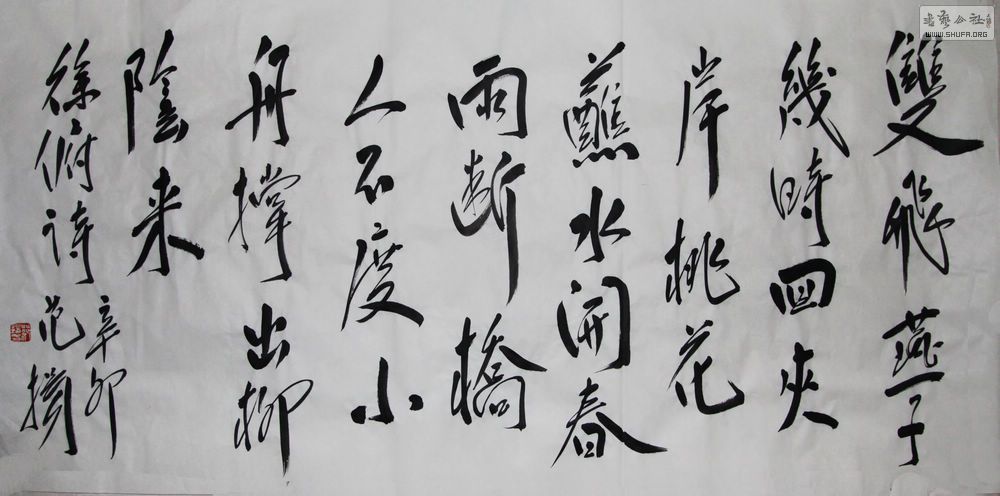 雙飛燕子
幾時回夾
岸桃花
蘸水開春
雨斷橋
人不度小
舟撑出柳
陰来
徐俯詩
辛卯
書藝公社
WWW.SHUFA.ORG